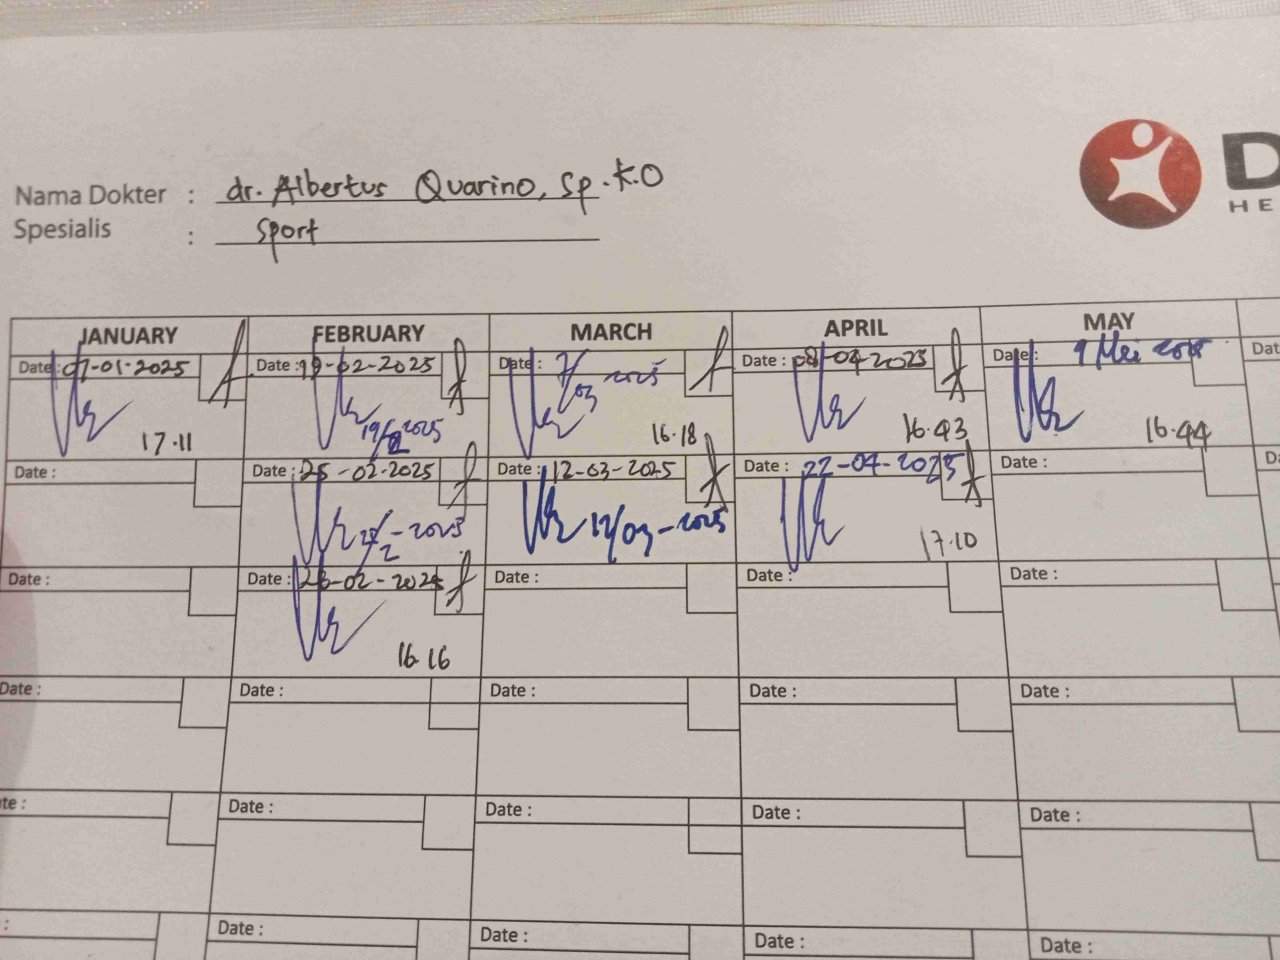 Nama Dokter : dr. Albertus Quarino, Sp.K.O
Spesialis : Sport
D
HE
JANUARY FEBRUARY MARCH APRIL MAY
Date: 07-01-2025 Date: 19-02-2025 Date: 7/03 2025 Date: 08-04-2025 Date: 9 Mei 2025 Dat
17.11 19/2 2025 16.18 16.43 16.44
Date: Date: 25-02-2025 Date: 12-03-2025 Date: 22-04-2025 Date: D
2025 12/03-2025 17.10
Date: Date: 28-02-2025 Date: Date: Date:
16.16
Date: Date: Date: Date: Date:
te: Date: Date: Date: Date:
: Date: Date: Date: Date: